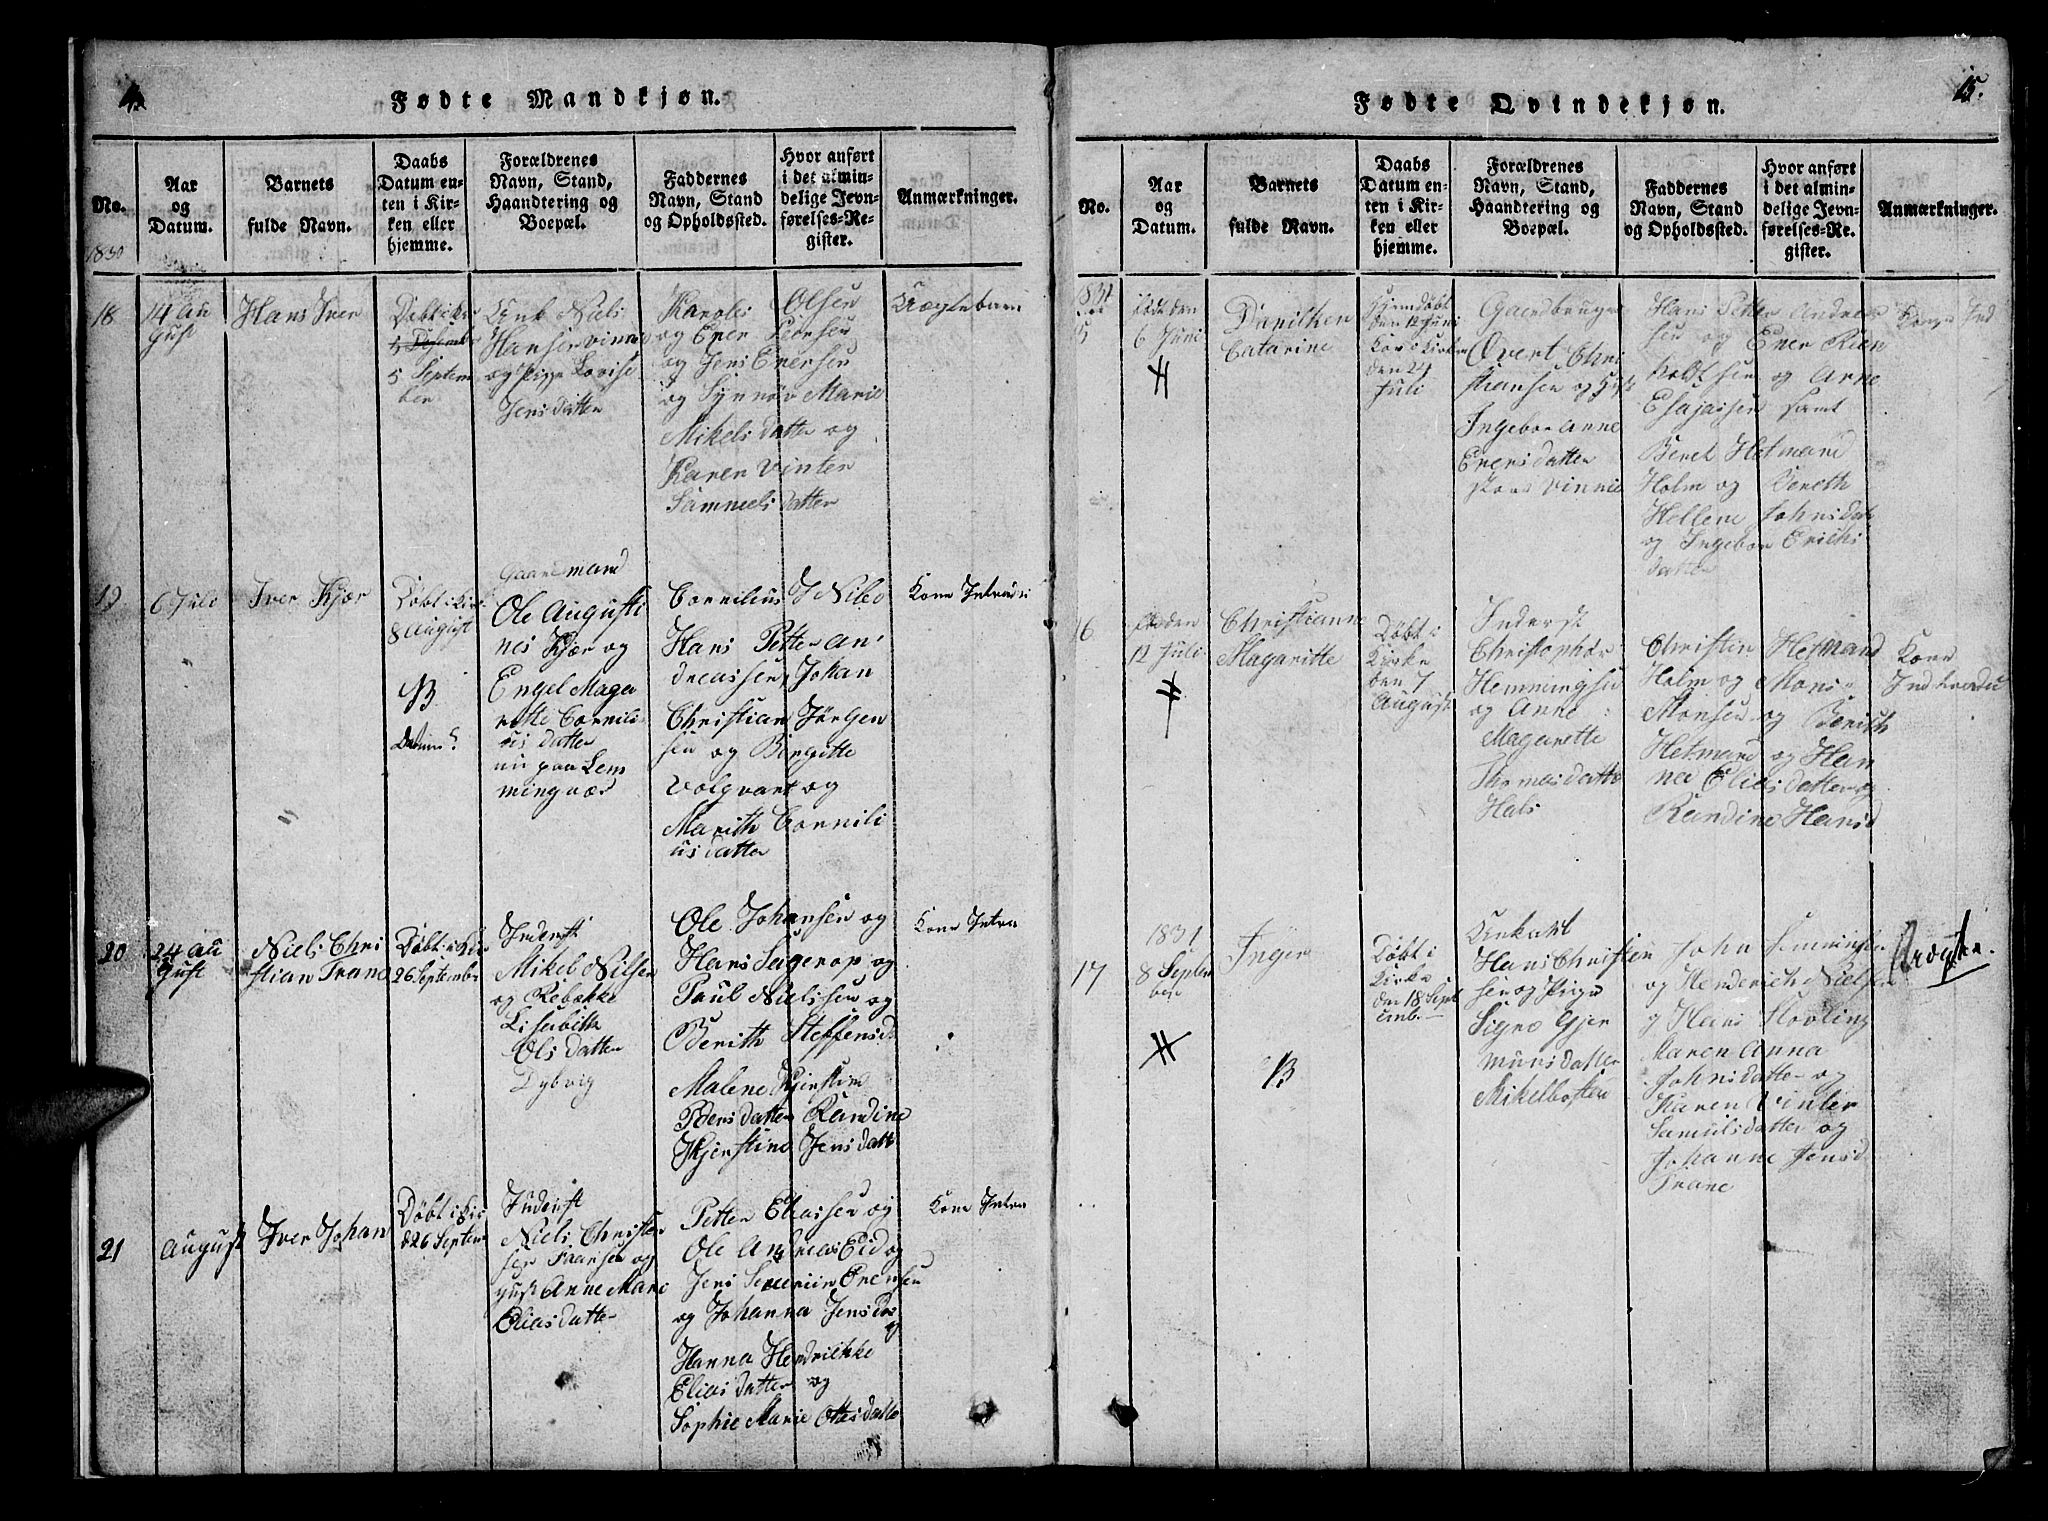 Fødte Mandkjøn.
No.
Aar
og
Datum.
Barnets
fulde Navn.
Daabs
Datum en-
ten i Kir-
ken eller
hjemme.
Forældrenes
Navn, Stand,
Haandtering og
Boepæl.
Faddernes
Navn, Stand
og Opholdssted.
Hvor anført
i det almin-
delige Jevn-
førelses-Re-
gister.
Anmærkninger.
1830
18
14 Au
gust
Hans Iver
Døbt i
5 Septem
ber
Niels
Hansen vinnie
og Pige Lovise
Jensdatter
Karoles Olsen
og Ener Peersen
og Jens Enersen
og Synnøv Marie
Mikelsdatter og
Karen Vinter
Samuelsdatter
Uægtebarn
19
6 Juli
Iver Kjær
Døbt i Kir
8 August
B
Datum?
Gaardmand
Ole Augusti
nes Kjær og
Engel Maga
rette Cornili
usdatter
nu paa Lem
mingvær
Cornilius J Nibo
Hans Petter An
dreassen, Johan
Christian Jørgen
sen og Birgitte
Volqvart og
Marith Cornili
usdatter
20
24 Au
gust
Niels Chri
stian Trane
Døbt i Kir
26 September
Inderst
Mikel Nilsen
og Rebække
Lisabith
Olsdatter
Dybvig
Ole Johansen og
Hans Segerop og
Paul Nielssen og
Berith Steffensd
Malene Kjerstine
Pedersdatter Randine
Kjerstine Jensdatt
Kone Intro
21
August
Iver Johan
Døbt i Kir
d 26 Septem
Inderst
Niels Christen
sen Fransen og
gust Anne Mari
Eliasdatter
Petter Eliassen og
Ole Andreas Eid og
Jens Severin Erensen
og Johanna Jensda
og
Hanna Hendrikke
Eliasdatter og
Sophie Marie Ottesdatte
Kone Intro
15.
Fødte Qvindekjøn.
No.
Aar
og
Datum.
Barnets
fulde Navn.
Daabs
Datum en-
ten i Kir-
ken eller
hjemme.
Forældrenes
Navn, Stand,
Haandtering og
Boepæl.
Faddernes
Navn, Stand
og Opholdssted.
Hvor anført
i det almin-
delige Jevn-
førelses-Re-
gister.
Anmærkninger.
1831
5
født den
6 Juni
Danilken
Catarine
Hjemdøbt
den 12 Juni
Kirken
den 24
Juli
Gaardbruger
Evert Chri
stiansen og Gust
Ingebor Anne
Enersdatter
Store Vinnie
Hans Petter Andreas
sen og Ener Rein
holdtsen og Arne
Esajassen samt
Beret Hetmand
Holm og Bereth
Hellene Johnsdat
og Ingebor Erichs
datter
16
født den
12 Juli
Christianne
Magaritte
Døbt i
Kirke
den 7
August
Inderst
Christophor
Hemmingsen
og Anne
Magarette
Thomasdatter
Hals
Christin Hetmand
Holm og Mons
Monsen og Berith
Hetmand og Han
na Eliasdatter og
Randine Hansd
Kone
17
1831
8 Septem
ber
Inger
B
Døbt i
Kirke
den 18 Sept
emb.
Enkahl
Hans Christen
sen og Pige
Signe Gjer
mundsdatter
Mikelbosten
John Hemmingsen
og Henderich Nielsen
og Hans Hovling
Maren Anna
Johnsdatter og
Karen Vinter
Samuelsdatter og
Johanne Jensd
Trane
Uægte.